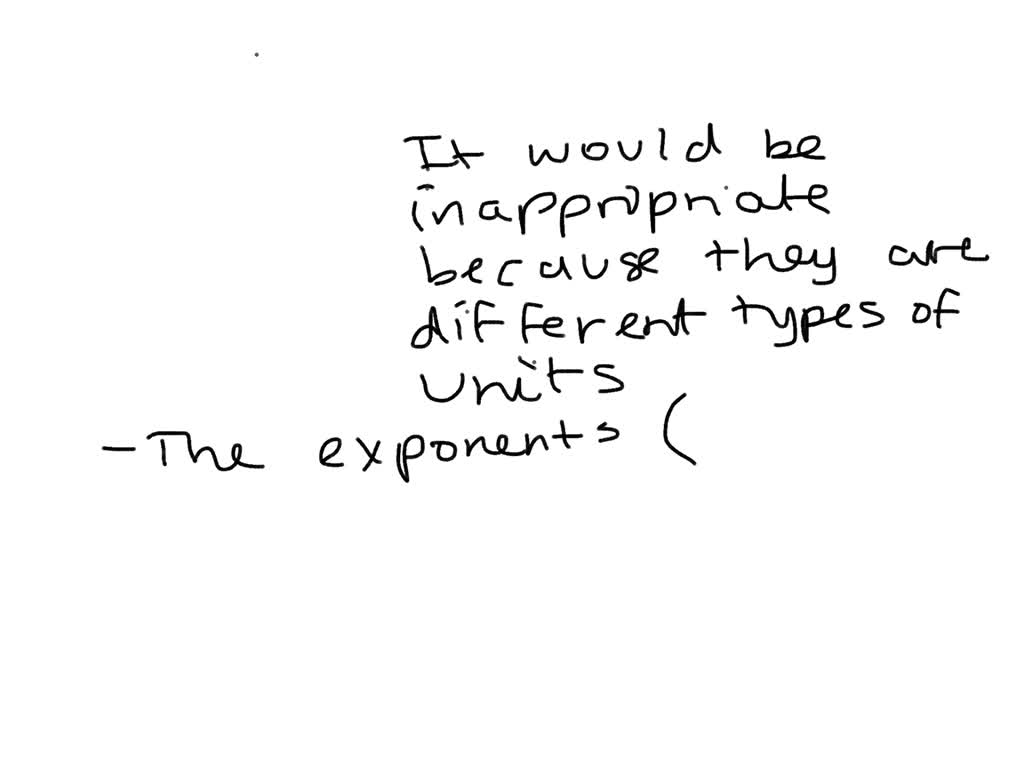 It would be
inappropriate
because they are
different types of
units
- The exponents (